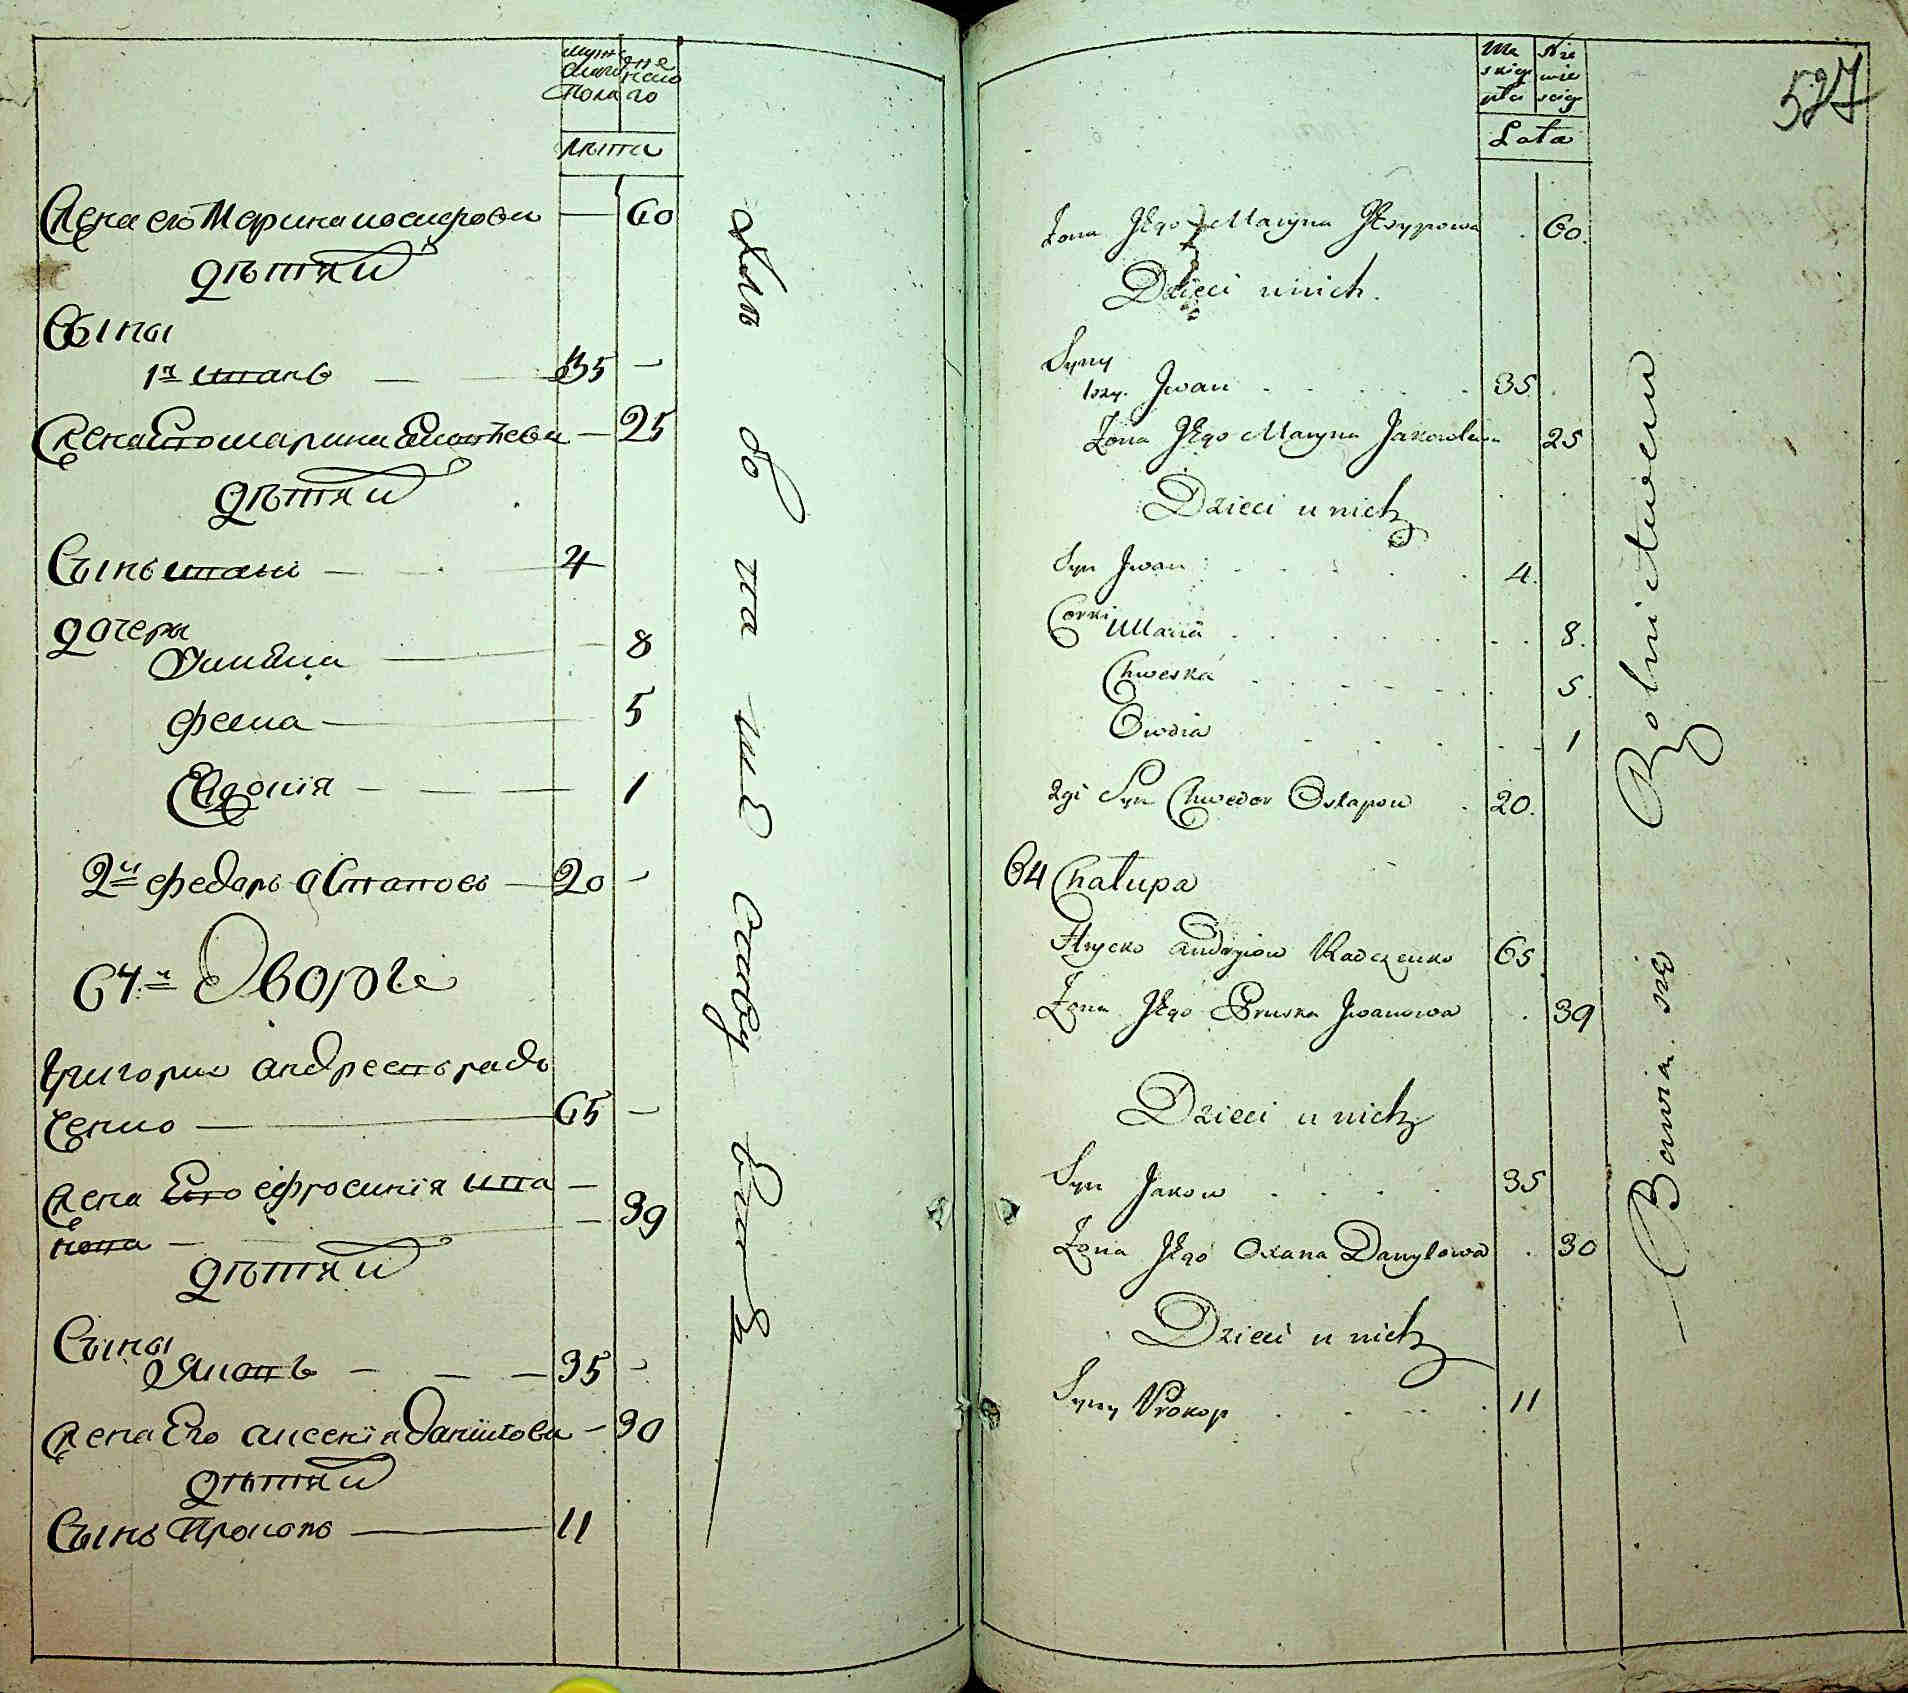 мужеского пола
женского
лѣта
Жена его Марина иосипова — 60
дѣти их
Сыны
1й иванъ — 35 —
Жена Его марина Яковлева — 25
дѣти их
Сынъ иванъ — 4
дочери
— 8
— 5
Евдокія — 1
2й федоръ Остаповъ — 20 —
64й Дворъ
Григорий андреевъ радь
ченко — 65 —
Жена Его ефросинія ива
нова — 39
дѣти их
Сыны
Яковъ — 35 —
Жена Его аксенія данилова — 30
дѣти их
Сынъ Прокопъ — 11
527
Męskiego płci
Niewieściego
Lata
Żona Jego Maryna Josypowa . 60.
Dzieci u nich.
Syny
1szy. Jwan . . . . . 35 .
Żona Jego Maryna Jakowlewa 25
Dzieci u nich
Syn Jwan . . . . . 4.
Corki
Maria . . . . . 8.
Chweska . . . . . 5.
Owdia . . . . . 1
2gi Syn Chwedor Ostapow . 20.
64 Chałupa
Hrycko Andryiow Radczenko 65.
Żona Jego Pruska Jwanowa . 39
Dzieci u nich
Syn Jakow . . . . 35
Żona Jego Oxana Danyłowa . 30
Dzieci u nich
Syny Prokop . . . . 11
Bawia się Rolnictwem